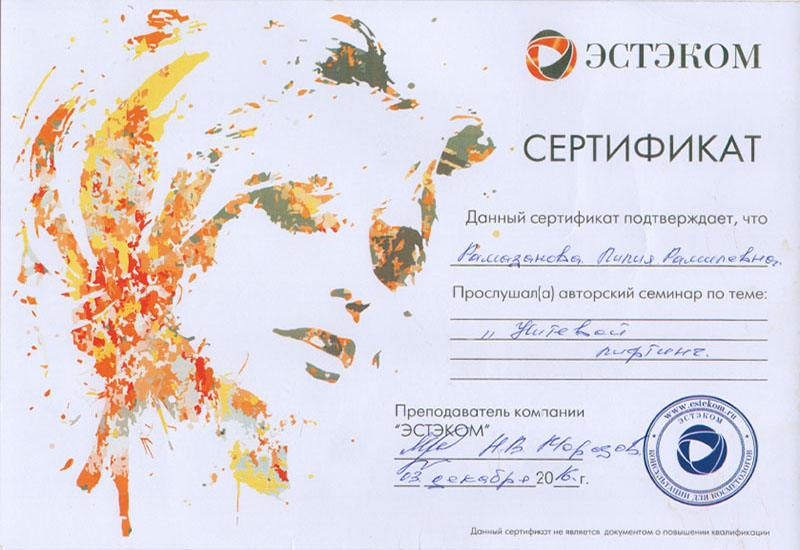 ЭСТЭКОМ
СЕРТИФИКАТ
Данный сертификат подтверждает, что
Рамазанова Лилия Рамилевна.
Прослушал(а) авторский семинар по теме:
„ Нитевой
лифтинг.
Преподаватель компании
"ЭСТЭКОМ"
Н.В. Морозов
03 декабря 2016 г.
www.estekom.ru
ЭСТЭКОМ
КОНСУЛЬТАЦИИ ДЛЯ КОСМЕТОЛОГОВ
Данный сертификат не является документом о повышении квалификации